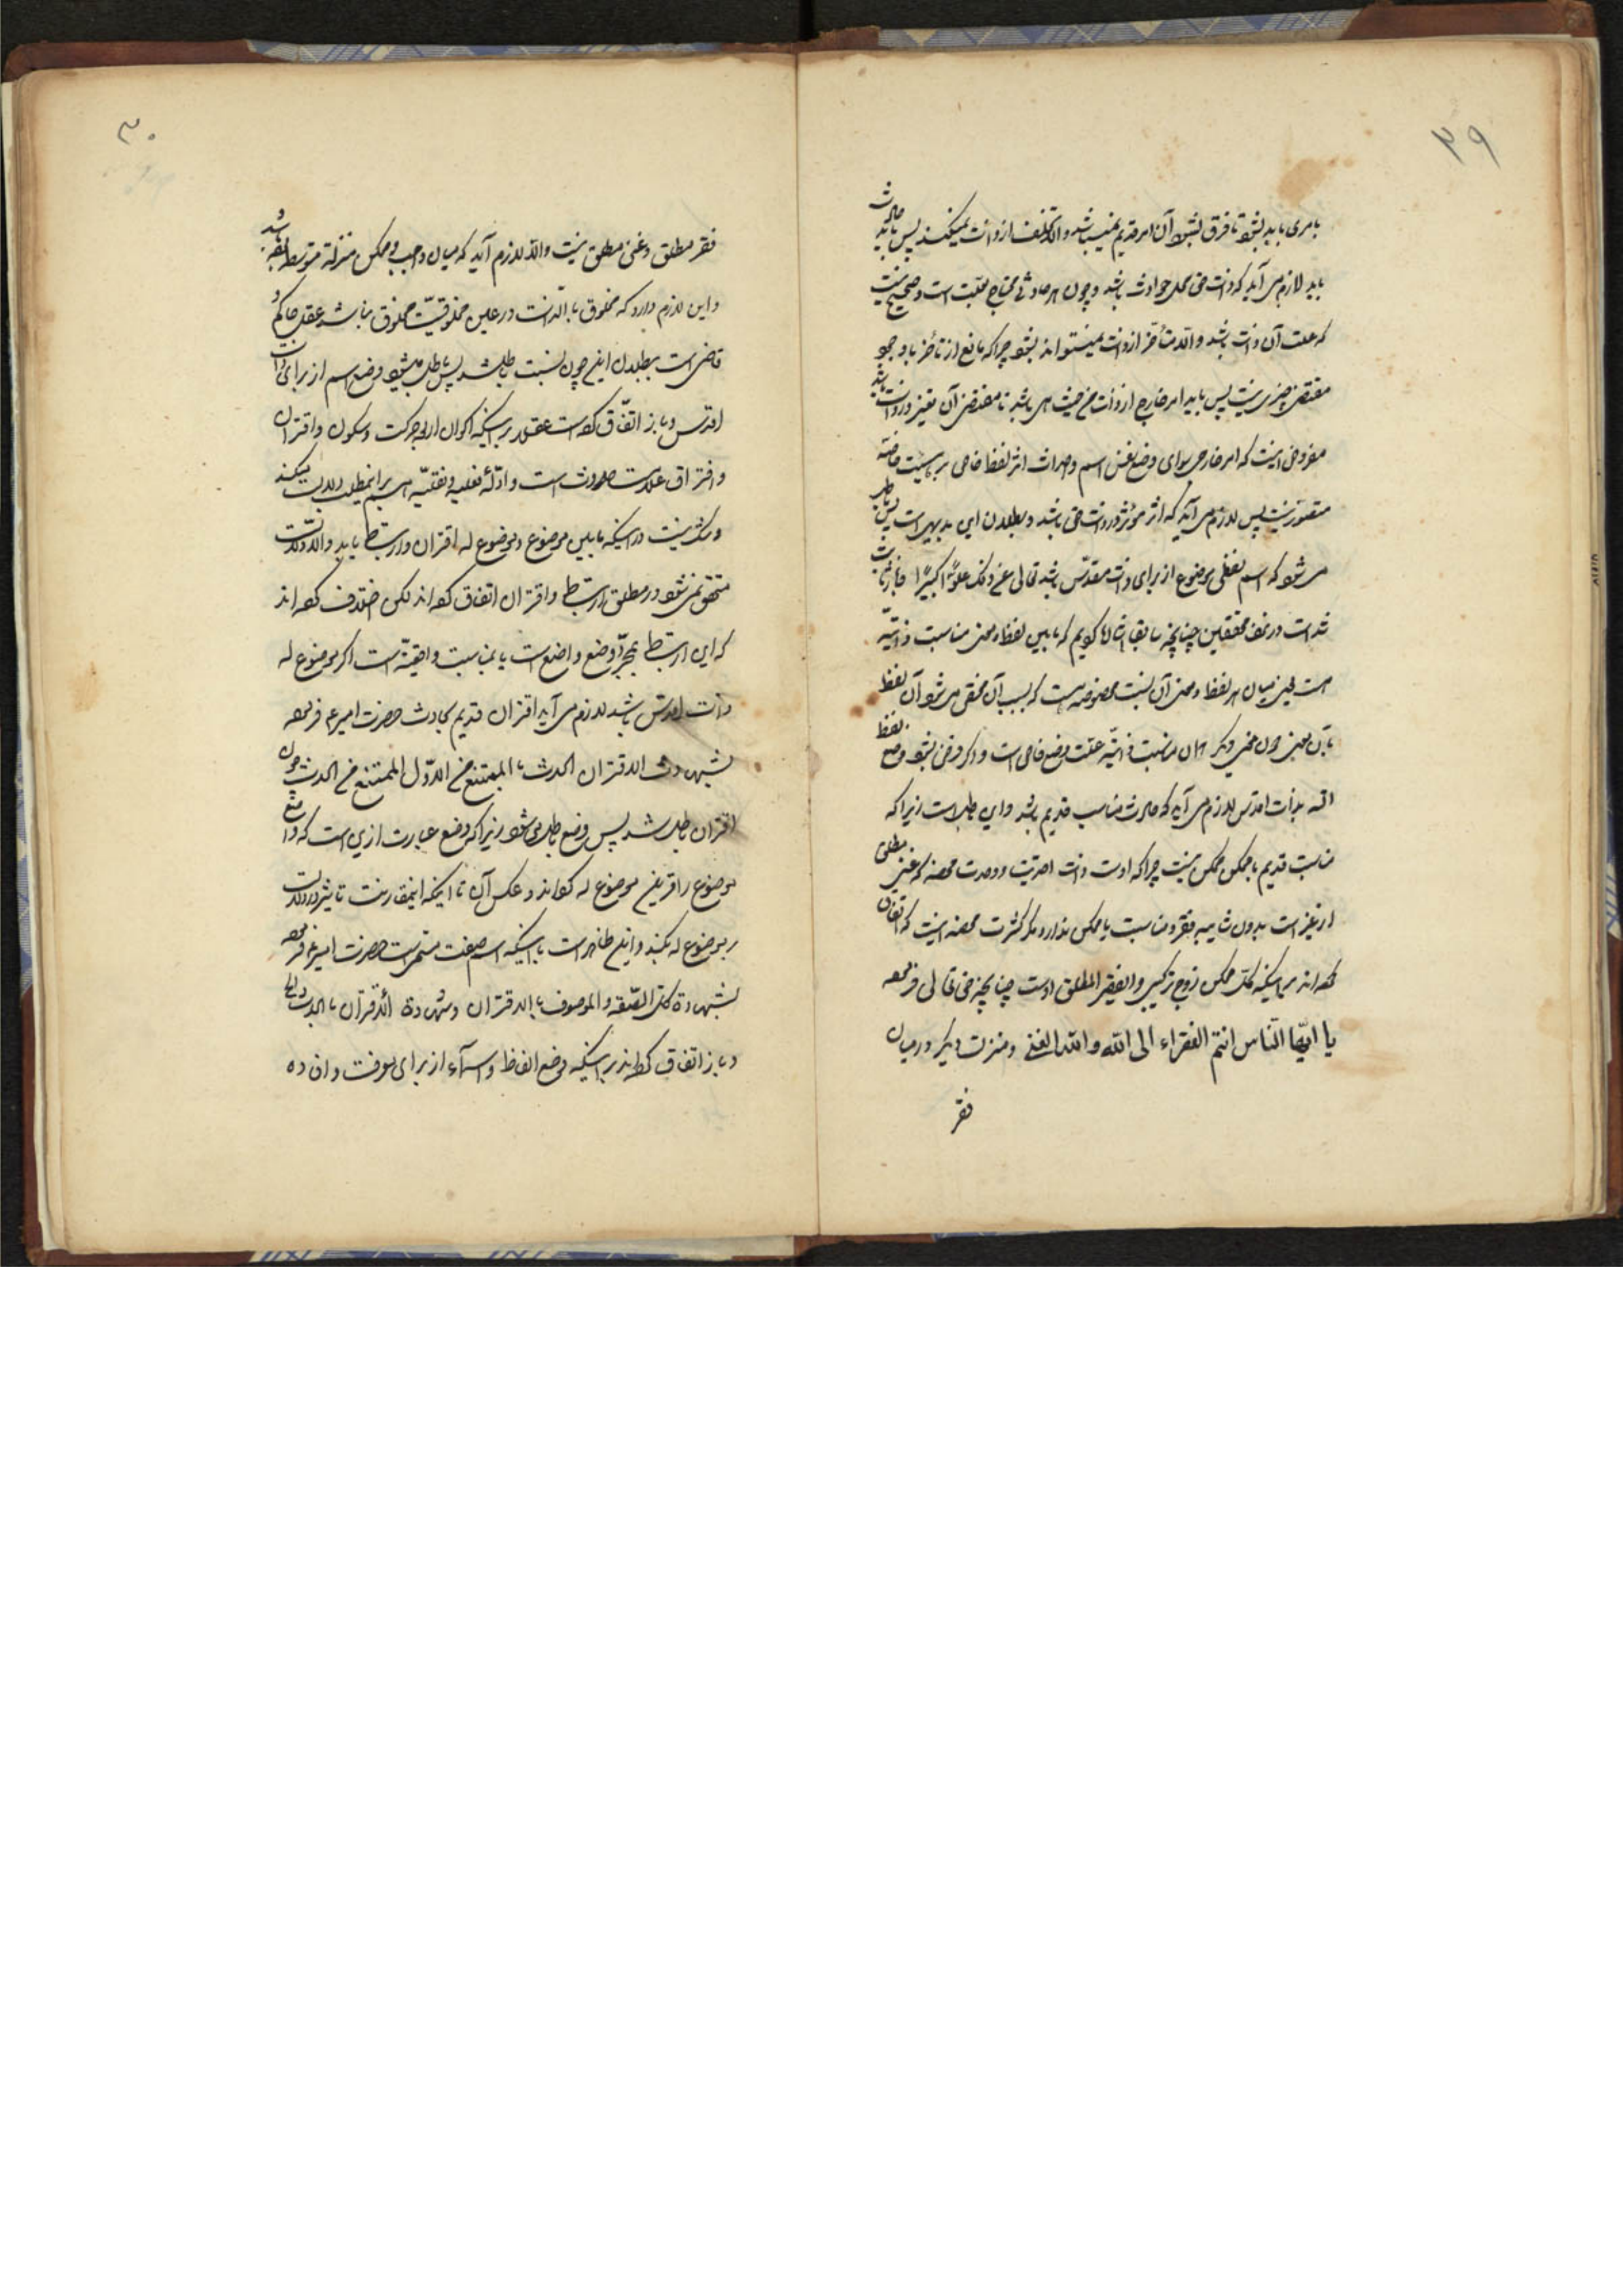 ۲۹
بامری باید بشود تا فرق بشود آن امر قدیم نمیباشد والا تخلف از ذات نمیکند پس باید حادث
باید لازم می آید که ذات حق محل حوادث باشد و چون هر حادثی محتاج بعلت است و صحیح نیست
که علت آن ذات باشد والا متأخر از ذات نمیتواند بشود چرا که مانع از تأخر با وجود
مقتضی چیزی نیست پس باید امر خارج از ذات من حیث هی باشد تا مقتضی آن تغیر در ذات باشد
مفروض اینست که امر خارجی سوای وضع نفس اسم و احداث اثر لفظ خاص بر هیئت خاصه
متصور نیست پس لازم می آید که اثر مؤثر در ذات حق باشد و بطلان این بدیهی است پس باطل
می شود که اسم لفظی موضوع از برای ذات مقدس باشد تعالی عن ذلک علوا کبیرا ثابت
شده است در نزد محققین چنانچه سابقا اشاره کردیم که مابین لفظ و معنی مناسبت ذاتیه
است یعنی میان هر لفظ و معنی آن نسبت مخصوصه است که بسبب آن مختص می شود آن لفظ
بآن معنی دون معنی دیگر همان مناسبت ذاتیه علت وضع خاص است و اگر فرض بشود وضع لفظ
الله بذات اقدس لازم می آید که حادث مناسب قدیم باشد و این باطل است زیرا که
مناسبت قدیم با ممکن ممکن نیست چرا که اوست ذات احدیت و وحدت محضه که غنی مطلق
از غیر است بدون شایبه فقر و مناسبت با ممکن ندارد مگر کثرت محضه اینست که اتفاق
کرده اند بر اینکه کل ممکن زوج ترکیبی و الفقیر المطلق اوست چنانچه حق تعالی فرموده
یا ایها الناس انتم الفقراء الی الله والله الغنی و منزلت دیگر در میان
فقر
۳۰
فقر مطلق و غنی مطلق نیست والا لازم آید که میان واجب و ممکن منزله متوسطه باشد
و این لازم دارد که مخلوق بالذات در عین مخلوقیت مخلوق نباشد عقل حاکم و
قاضی است ببطلان اینی چون نسبت باطل شد پس باطل میشود وضع اسم از برای ذات
اقدس و باز اتفاق کرده است عقول بر اینکه اکوان اربعه حرکت و سکون و اقتران
و افتراق علامت حدوث است و ادله عقلیه و نقلیه هم بر اینمطلب دلالت میکند
و شک نیست در اینکه مابین موضوع و موضوع له اقتران و ارتباط باید والا دلالت
متحقق نمی شود در مطلق ارتباط و اقتران اتفاق کرده اند لکن اختلاف کرده اند
که این ارتباط بمجرد وضع واضع است یا بمناسبت واقعیه است اگر موضوع له
ذات اقدس باشد لازم می آید اقتران قدیم بحادث حضرت امیر ع فرموده
بشهادة الاقتران الحدث الممتنع من الازل الممتنع من الحدث چون
اقتران باطل شد پس وضع باطل میشود زیرا که وضع عبارت از این است که واضع
موضوع را قرین موضوع له کرداند و عکس آن تا اینکه اینمقارنت تأثیر در دلالت
بر موضوع له بکند و اینی ظاهر است با اینکه اسم صفت مسمی است حضرت امیر ع فرموده
لشهادة کل الصفة والموصوف بالاقتران و شهادة الاقتران بالحدث
و باز اتفاق کرده اند بر اینکه وضع الفاظ و اسماء از برای معرفت و افاده